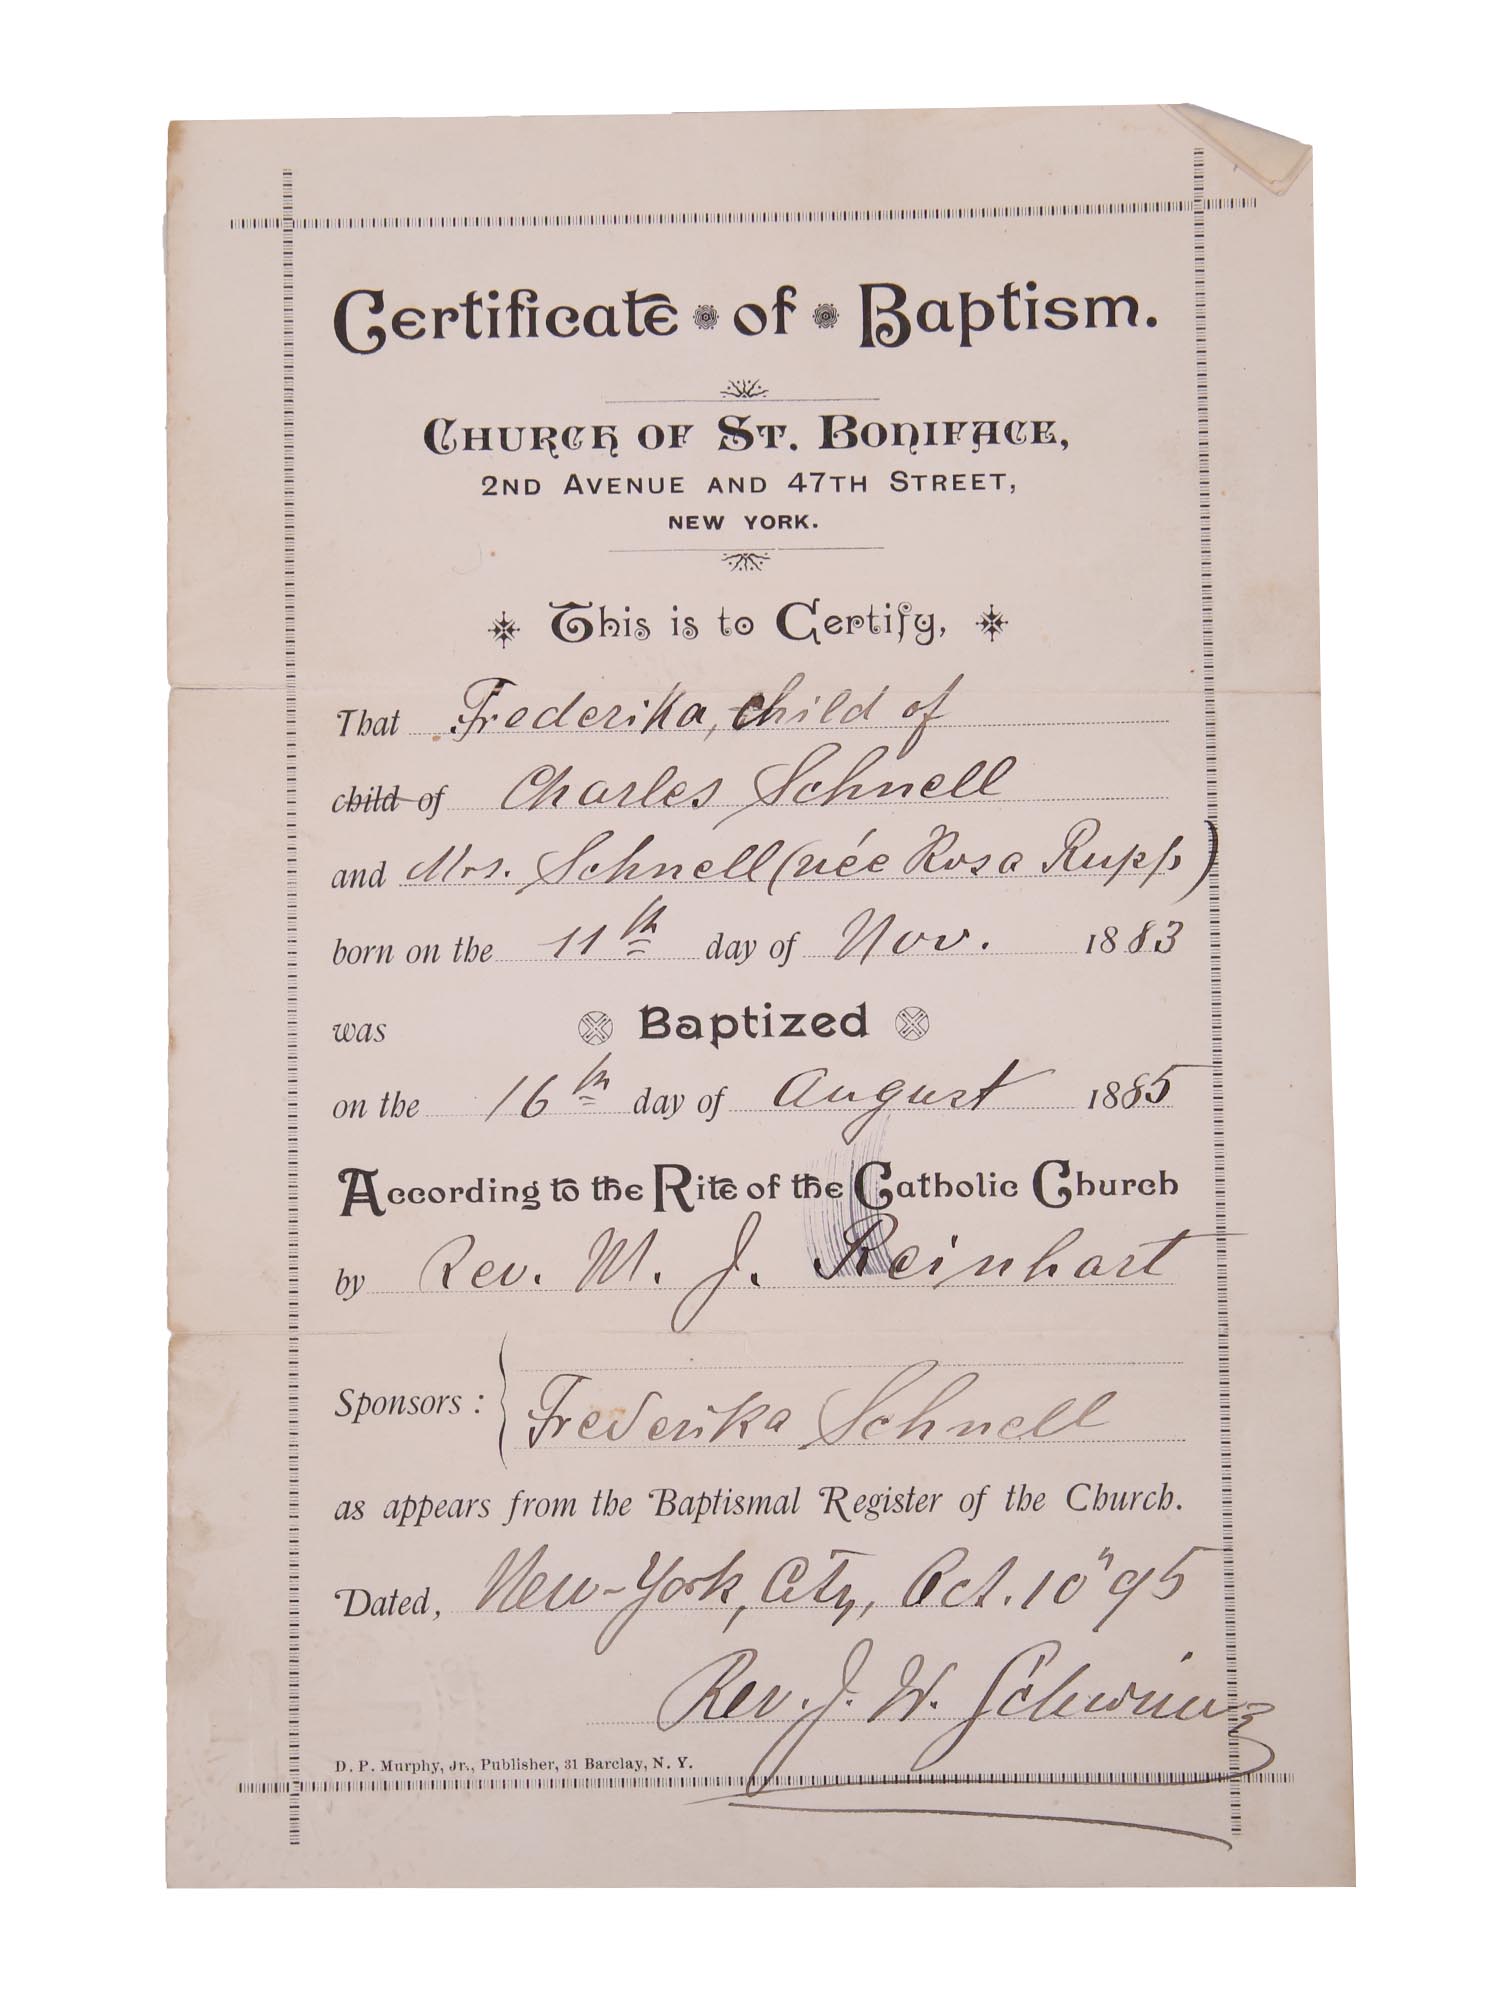 Certificate of Baptism.
Church of St. Boniface,
2nd Avenue and 47th Street,
NEW YORK.
This is to Certify,
That Frederika, child of
child of Charles Schnell
and Mrs. Schnell (née Rosa Rupp)
born on the 11th day of Nov. 1883
was Baptized
on the 16th day of August 1885
According to the Rite of the Catholic Church
by Rev. M. J. Reinhart
Sponsors: Frederika Schnell
as appears from the Baptismal Register of the Church.
Dated, New-York, City, Oct. 10" 95
Rev. J. W.
D. P. Murphy, Jr., Publisher, 31 Barclay, N. Y.